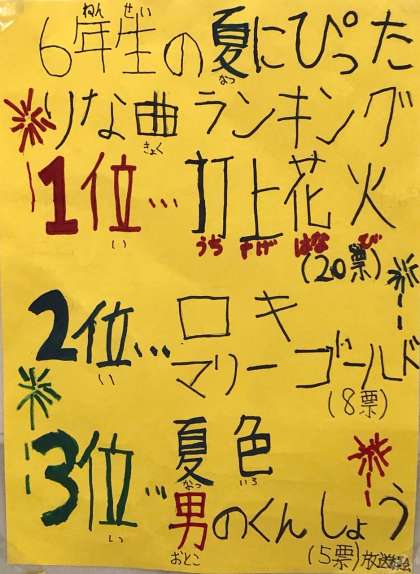 6年生の夏にぴった
ねん せい なつ
りな曲ランキング
きょく
1位…打上花火
い うちあげ はなび
(20票)
2位…ロキ
い
マリーゴールド
(8票)
3位…夏色
い なついろ
男のくんしょう
おとこ
(5票)放送